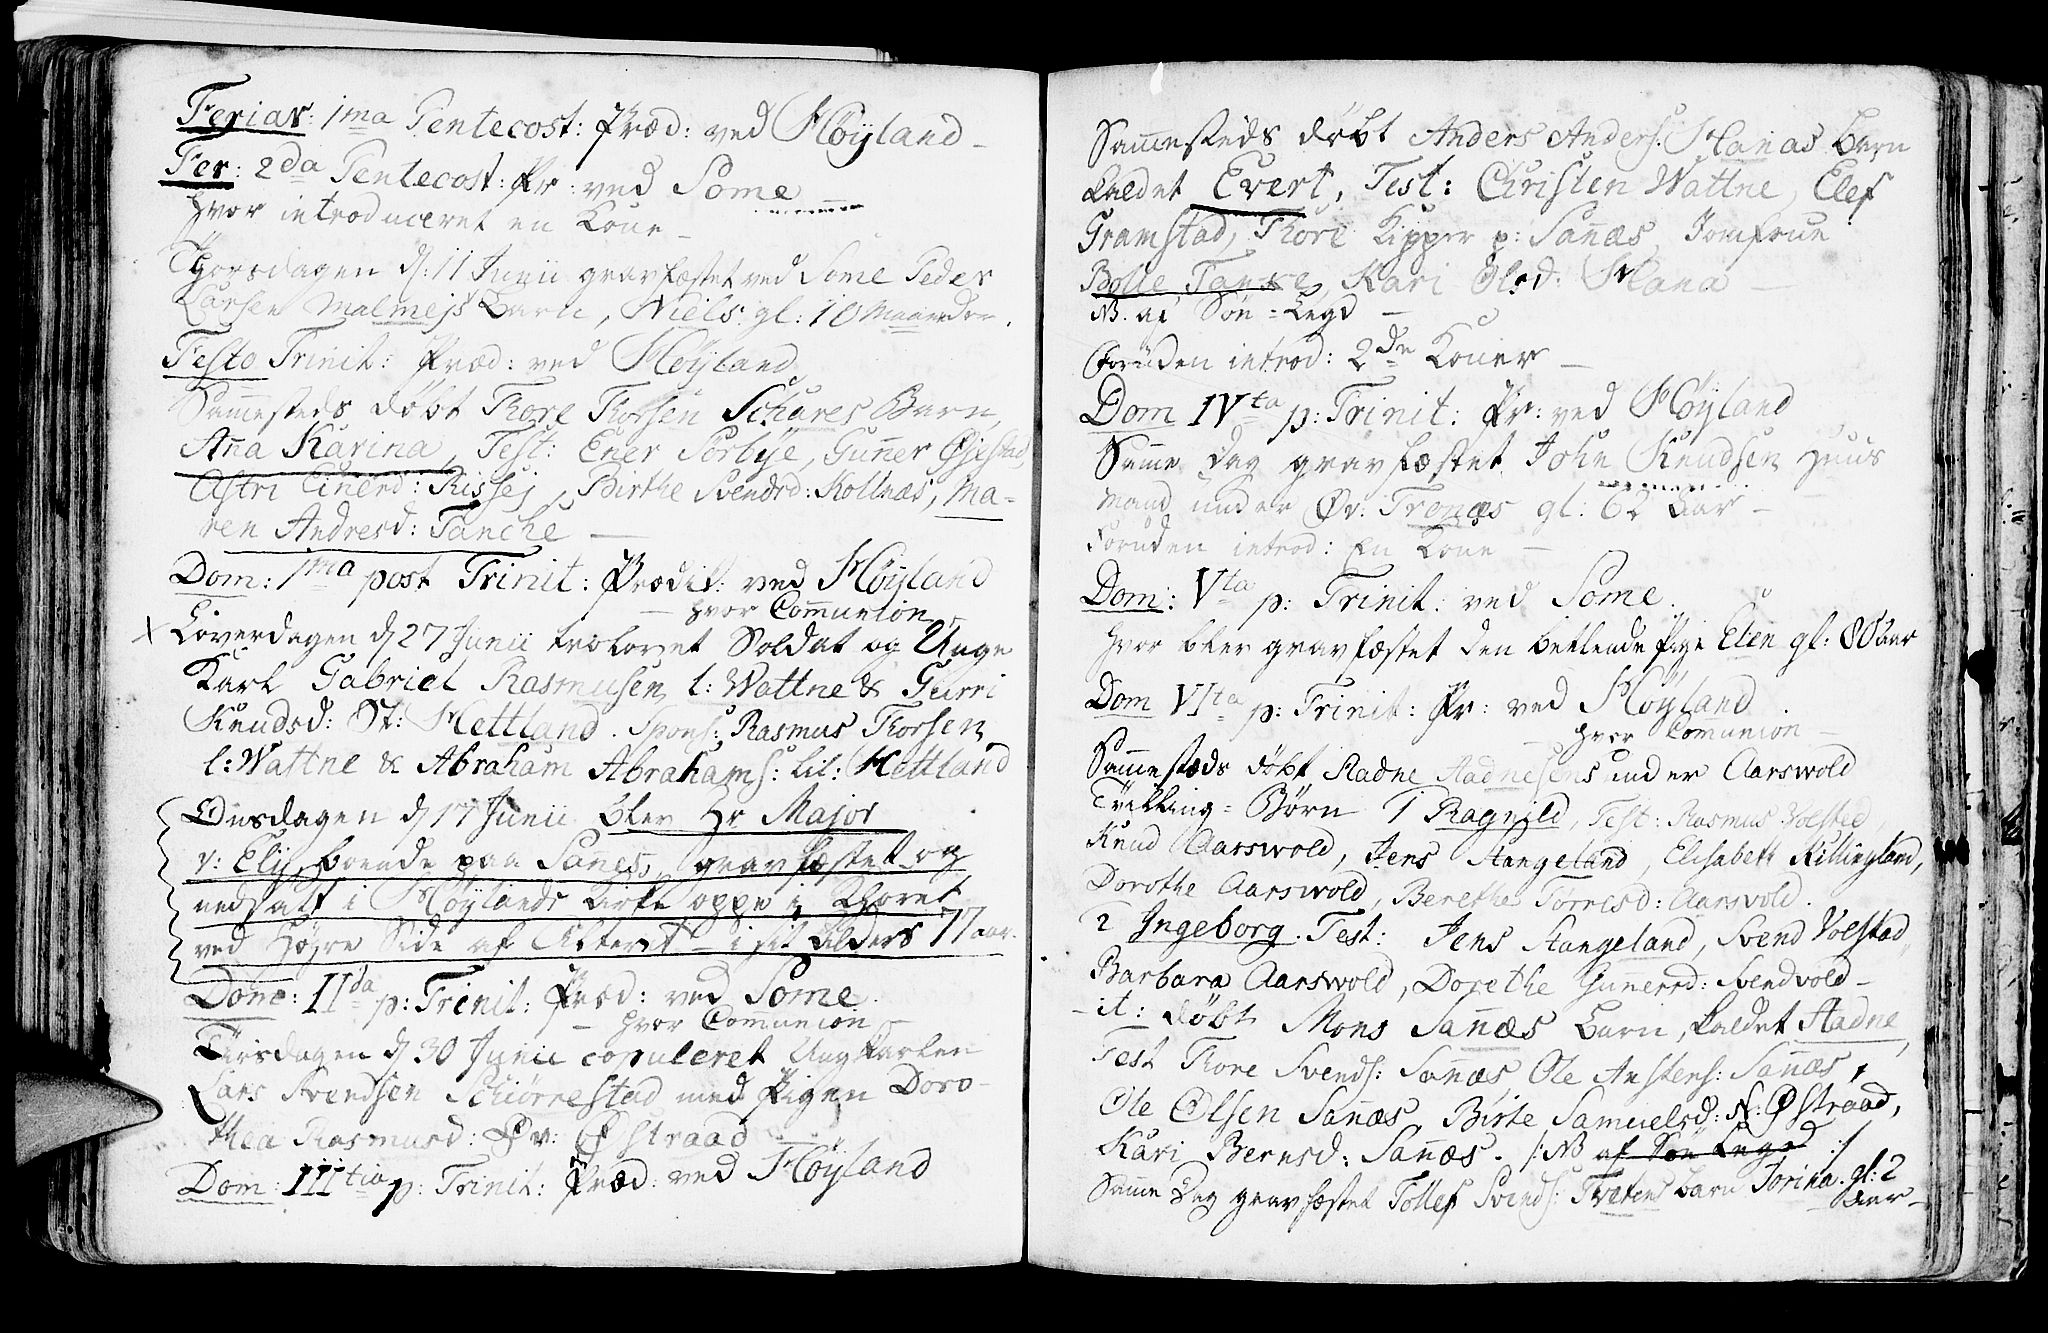 Feriar: 1ma Pentecost: Præd: ved Höÿland –
Fer: 2da Pentecost: Pr: ved Some
hvor introduceret en Kone –
Thorsdagen d: 11 Junii gravfæstet ved Some Peder
Larsen Malmejs Barn, Niels gl: 10 Maaneder.
Festo Trinit: Præd: ved Höÿland
Sam̄esteds döbt Thore Thorsen Schares Barn,
An̄a Karina, Test: Ener Sörbÿe, Gun̄er
Astri Einerd: Rissej, Birthe Svendsd: Kollnæs, Ma=
ren Andresd: Tanche –
Dom: 1ma post Trinit: Prædik: ved Höÿland
– hvor Com̄union
x Löverdagen d 27 Junii trolovet Soldat og Unge
Karl Gabriel Rasmusen l: Wattne & Gurri
Knudsd: St: Hettland. Spons: Rasmus Thorsen
l: Wattne & Abraham Abrahams: lil: Hettland
Onsdagen d 17 Junii blev Hr Major
v: Elÿ boende paa San̄es, gravfæstet og
nedsatt i Höÿlands Kirke oppe i Choret
ved Höjre Side af Alteret – i sit Alders 77 aar.
Dom: IIda p: Trinit: Præd: ved Some.
– hvor Com̄union –
Tirsdagen d 30 Junii copuleret Ungkarlen
Lars Svendsen Schiörrestad med Pigen Doro-
thea Rasmusd: Øv: Østraad
Dom: IIItia p: Trinit: Præd: ved Höÿland
Sam̄esteds döbt Anders Anders: Hanas Barn
kaldet Evert, Test: Christen Wattne, Elef
Gramstad, Thore Kipper p: San̄æs, Jomfrue
Bolle Tanke, Kari Olsd: Hana –
NB. af Sön = Legd –
Foruden introd: 2de Koner –
Dom IVta p: Trinit: Pr: ved Höÿland
Sam̄e Dag gravfæstet John Knudsen Huus
mand under Øv: Tronæs gl: 62 aar –
Foruden introd: En Kone –
Dom: Vta p: Trinit: ved Some.
hvor blev gravfæstet den betlende Pige Elen gl: 80 aar
Dom VIta p: Trinit: Pr: ved Höÿland
hvor Com̄union –
Sam̄esteds döbt Aadne Aadnesens under Aarswold
Tvilling = Börn 1 Ragnild, Test: Rasmus Volsted,
Knud Aarswold, Jens Stangeland, Elisabett Killingland,
Dorothe Aarswold, Berethe Tørresd: Aarsvold.
2 Ingeborg. Test: Jens Stangeland, Svend Volstad,
Barbara Aarswold, Dorethe Gunnersd: Svendvold –
– it: döbt Mons San̄æs Barn, kaldet Aadne,
Test Thore Svends: San̄æs, Ole Austens: San̄æs,
Ole Olsen San̄æs, Birte Samuelsd: N: Østraad,
Kari Bernsd: San̄æs. /: NB af Sön Legd :/
Sam̄e Dag gravfæstet Tollef Svends: Tvetens Barn Jorina. gl: 2
Aar –